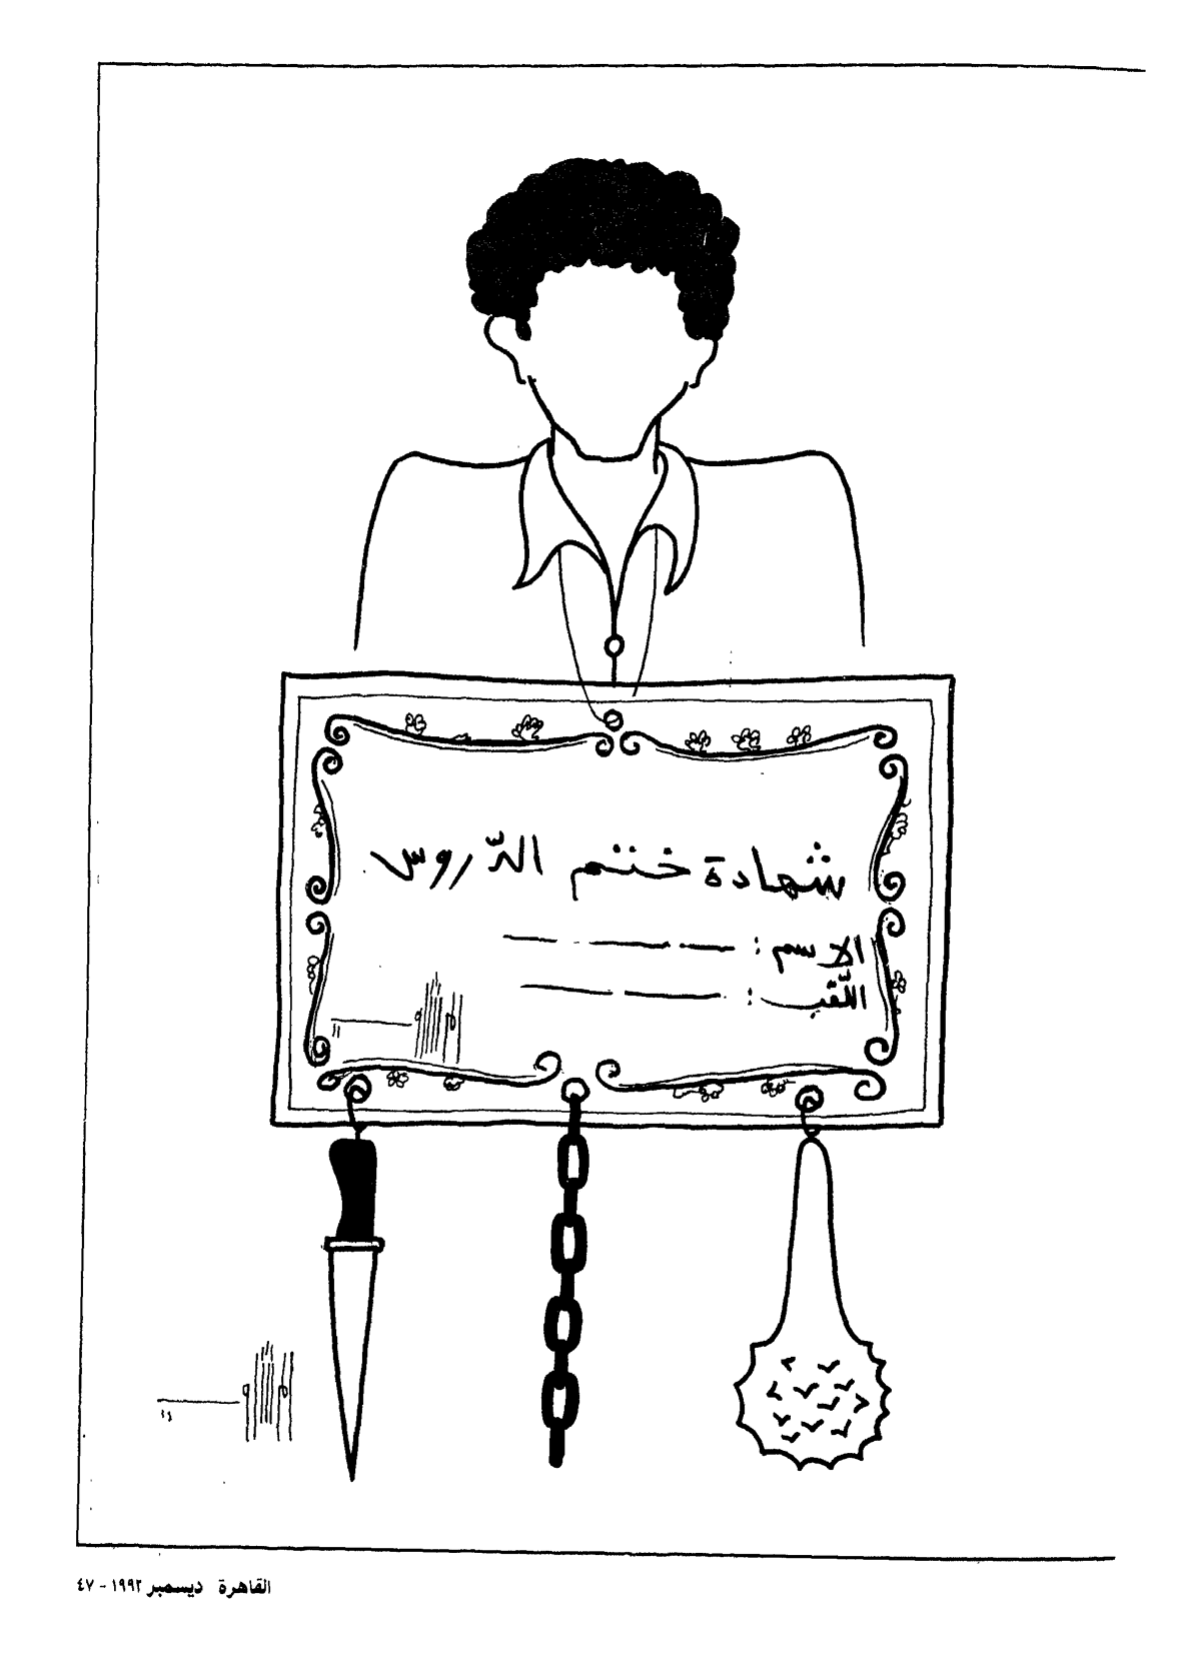 شهادة ختم الدّروس
الاسم :
اللّقب :
القاهرة ديسمبر ١٩٩٢ - ٤٧